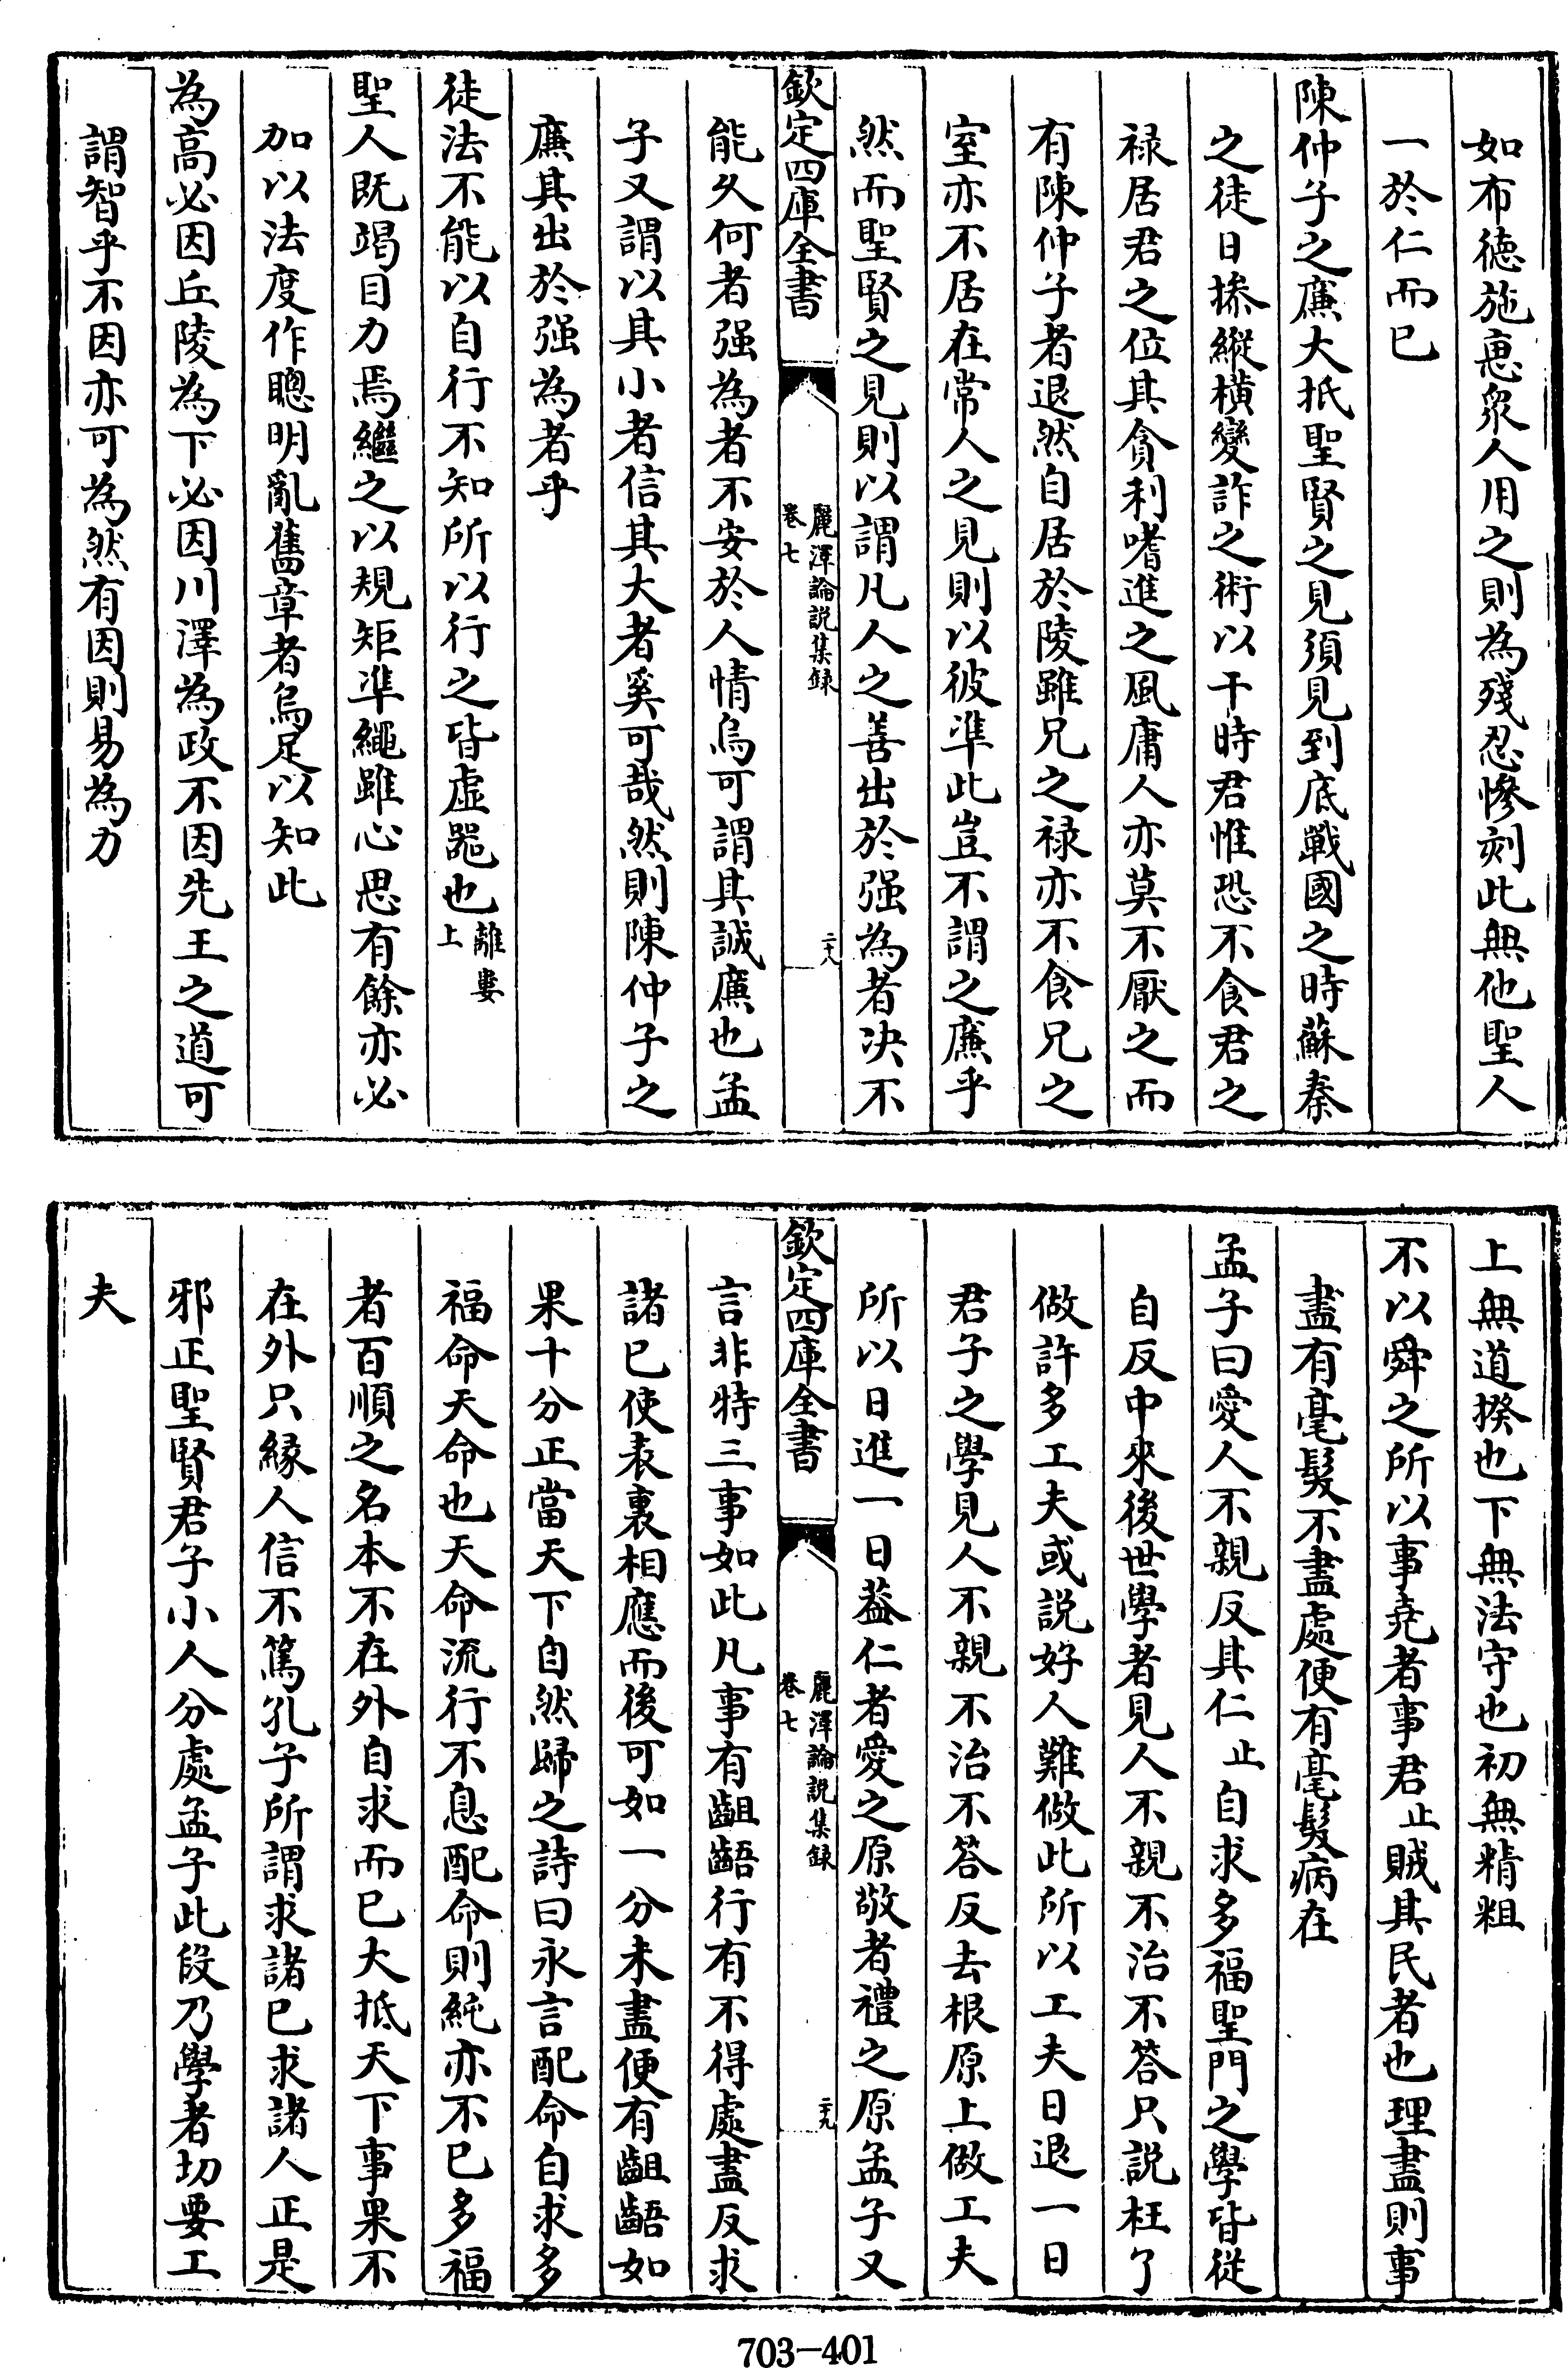 如布德施惠衆人用之則為殘忍慘刻此無他聖人
一於仁而已
陳仲子之廉大抵聖賢之見須見到底戰國之時蘇秦
之徒日捺縱橫變詐之術以干時君惟恐不食君之
禄居君之位其貪利嗜進之風庸人亦莫不厭之而
有陳仲子者退然自居於陵雖兄之禄亦不食兄之
室亦不居在常人之見則以彼準此豈不謂之廉乎
然而聖賢之見則以謂凡人之善出於强為者决不
欽定四庫全書
麗澤論説集録
卷七
二十八
能久何者强為者不安於人情烏可謂其誠廉也孟
子又謂以其小者信其大者奚可哉然則陳仲子之
廉其出於强為者乎
徒法不能以自行不知所以行之皆虚器也離婁上
聖人既竭目力焉繼之以規矩準繩雖心思有餘亦必
加以法度作聰明亂舊章者烏足以知此
為高必因丘陵為下必因川澤為政不因先王之道可
謂智乎不因亦可為然有因則易為力
上無道揆也下無法守也初無精粗
不以舜之所以事堯者事君止賊其民者也理盡則事
盡有毫髮不盡處便有毫髮病在
孟子曰愛人不親反其仁止自求多福聖門之學皆從
自反中來後世學者見人不親不治不答只説枉了
做許多工夫或説好人難做此所以工夫日退一日
君子之學見人不親不治不答反去根原上做工夫
所以日進一日葢仁者愛之原敬者禮之原孟子又
欽定四庫全書
麗澤論説集録
卷七
二十九
言非特三事如此凡事有齟齬行有不得處盡反求
諸已使表裏相應而後可如一分未盡便有齟齬如
果十分正當天下自然歸之詩曰永言配命自求多
福命天命也天命流行不息配命則純亦不已多福
者百順之名本不在外自求而已大抵天下事果不
在外只緣人信不篤孔子所謂求諸已求諸人正是
邪正聖賢君子小人分處孟子此段乃學者切要工
夫
703-401